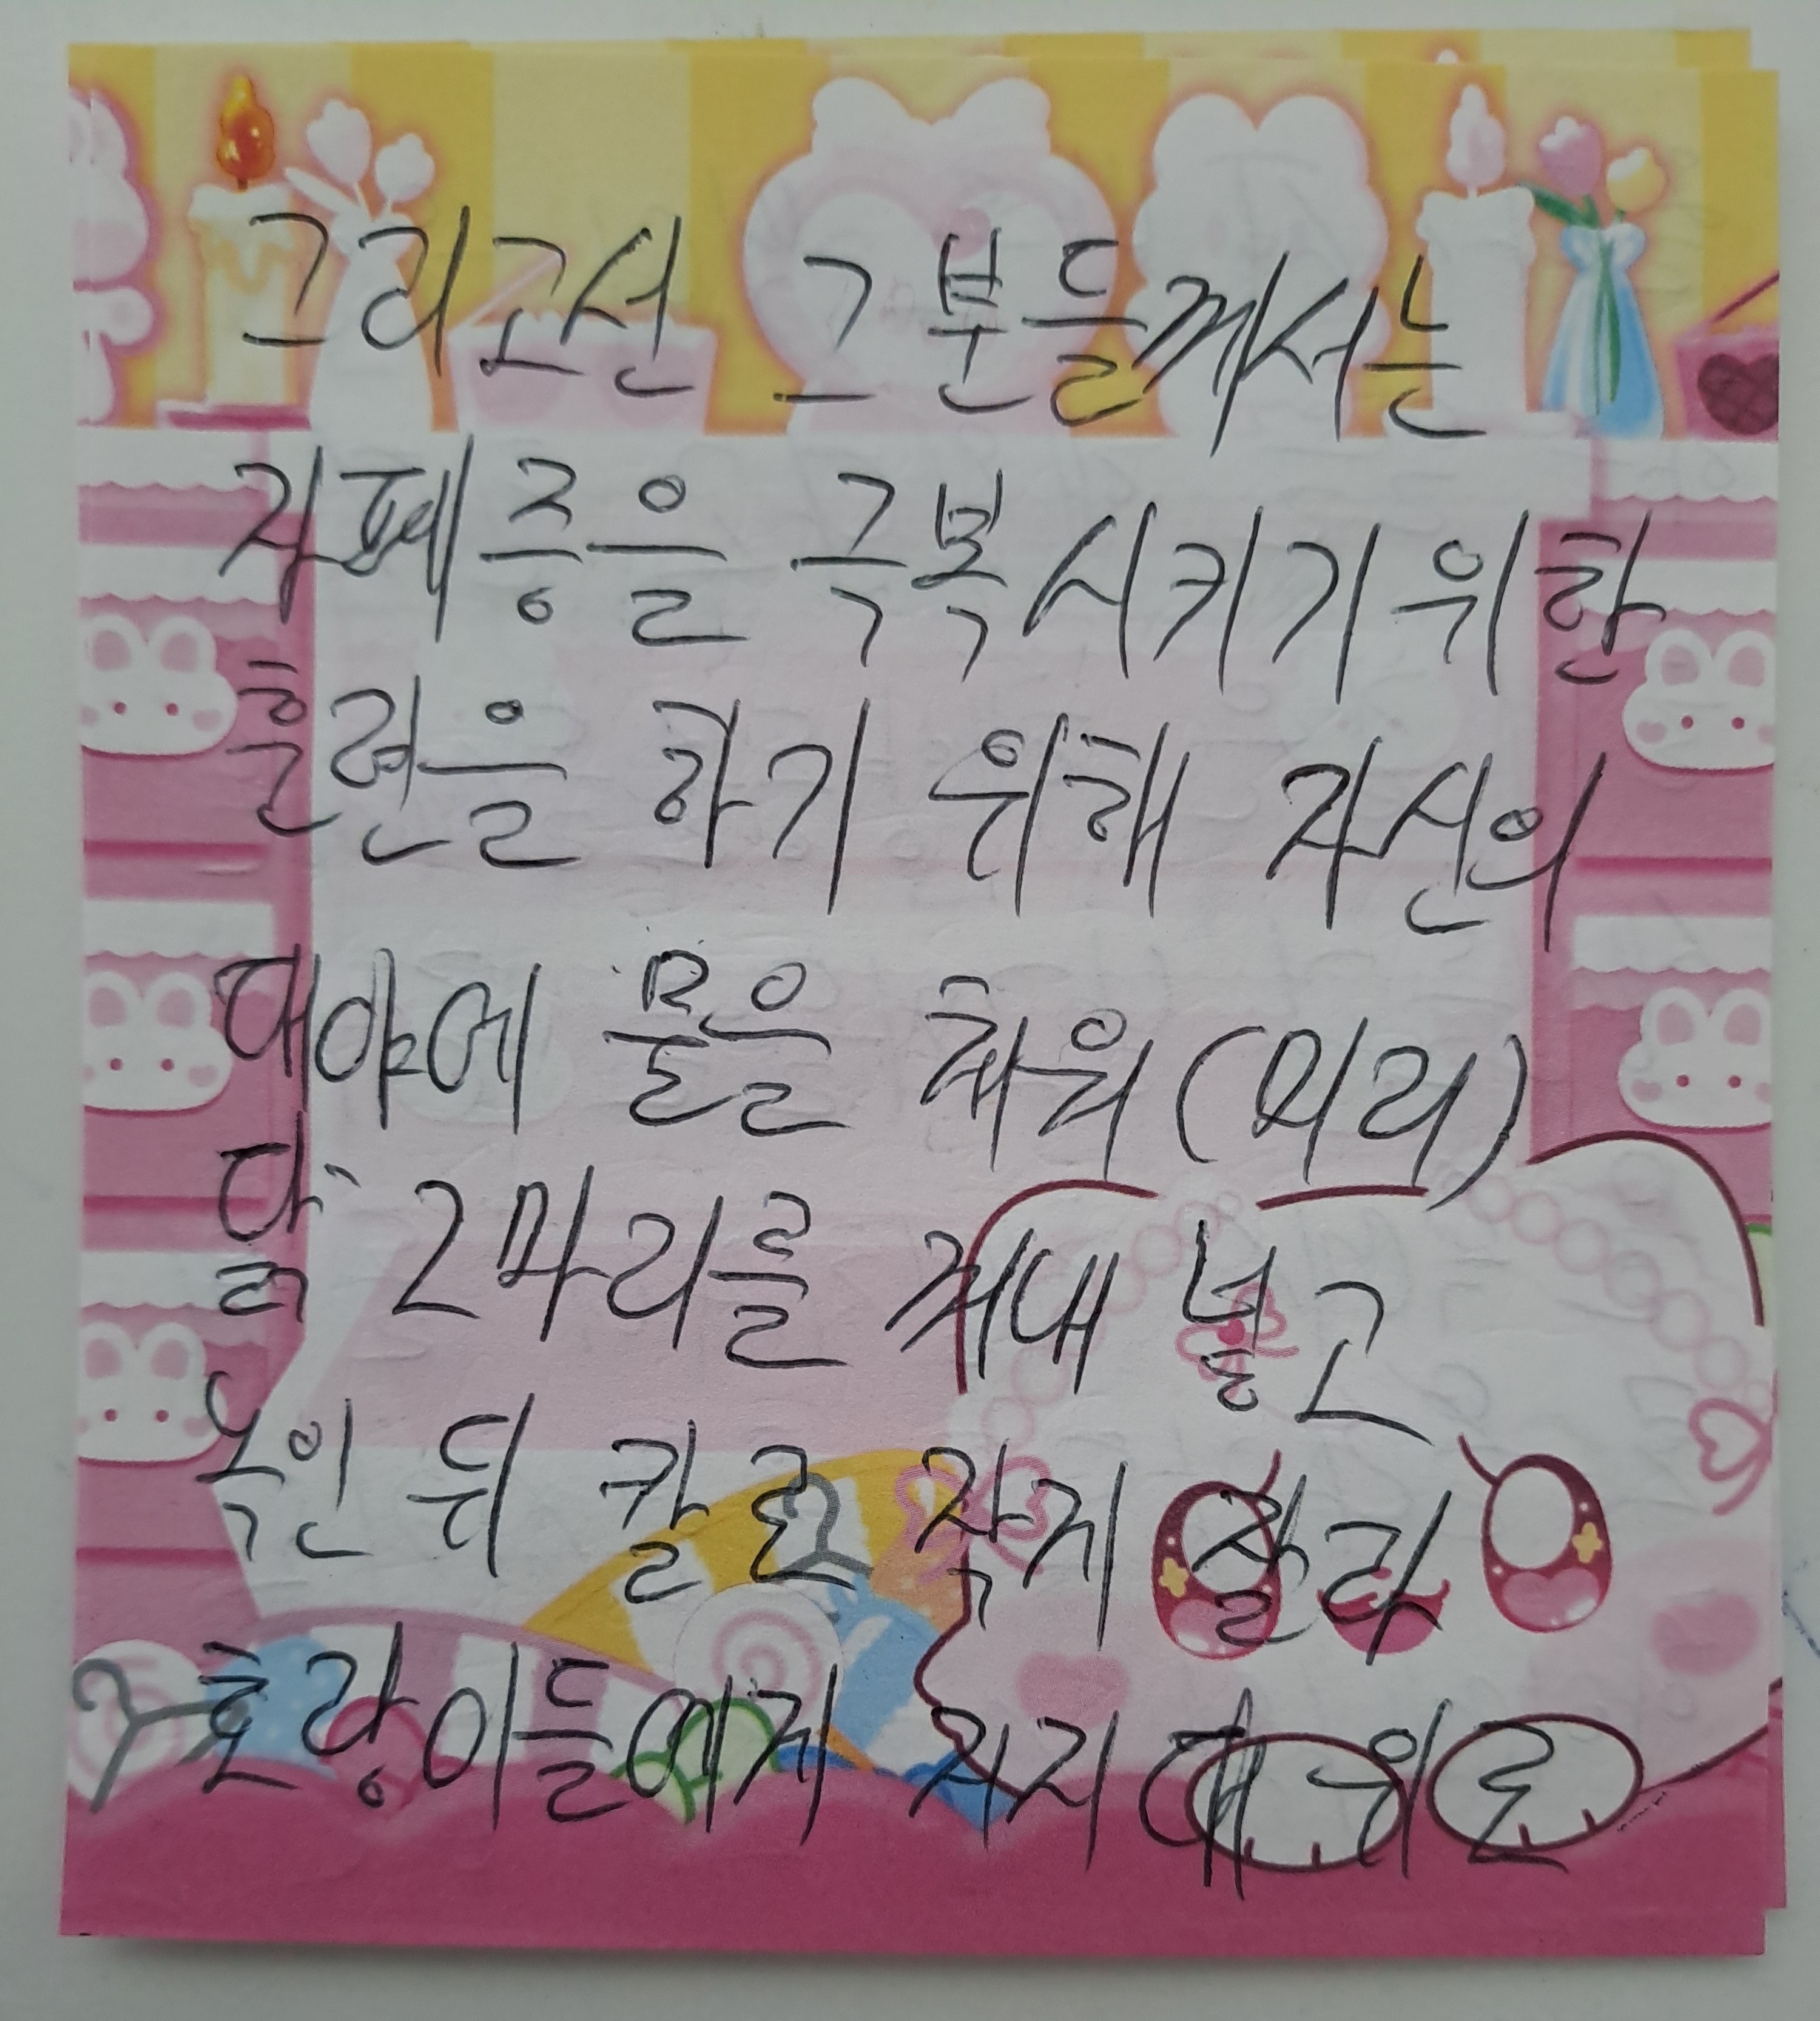 그리고선 그분들께서는
자폐증을 극복시키기 위한
훈련을 하기 위해 자신의
대야에 물을 채워 (미리)
닭 2마리를 꺼내 넣고
녹인 뒤 칼로 작게 잘라
호랑이들에게 거지 대 위로